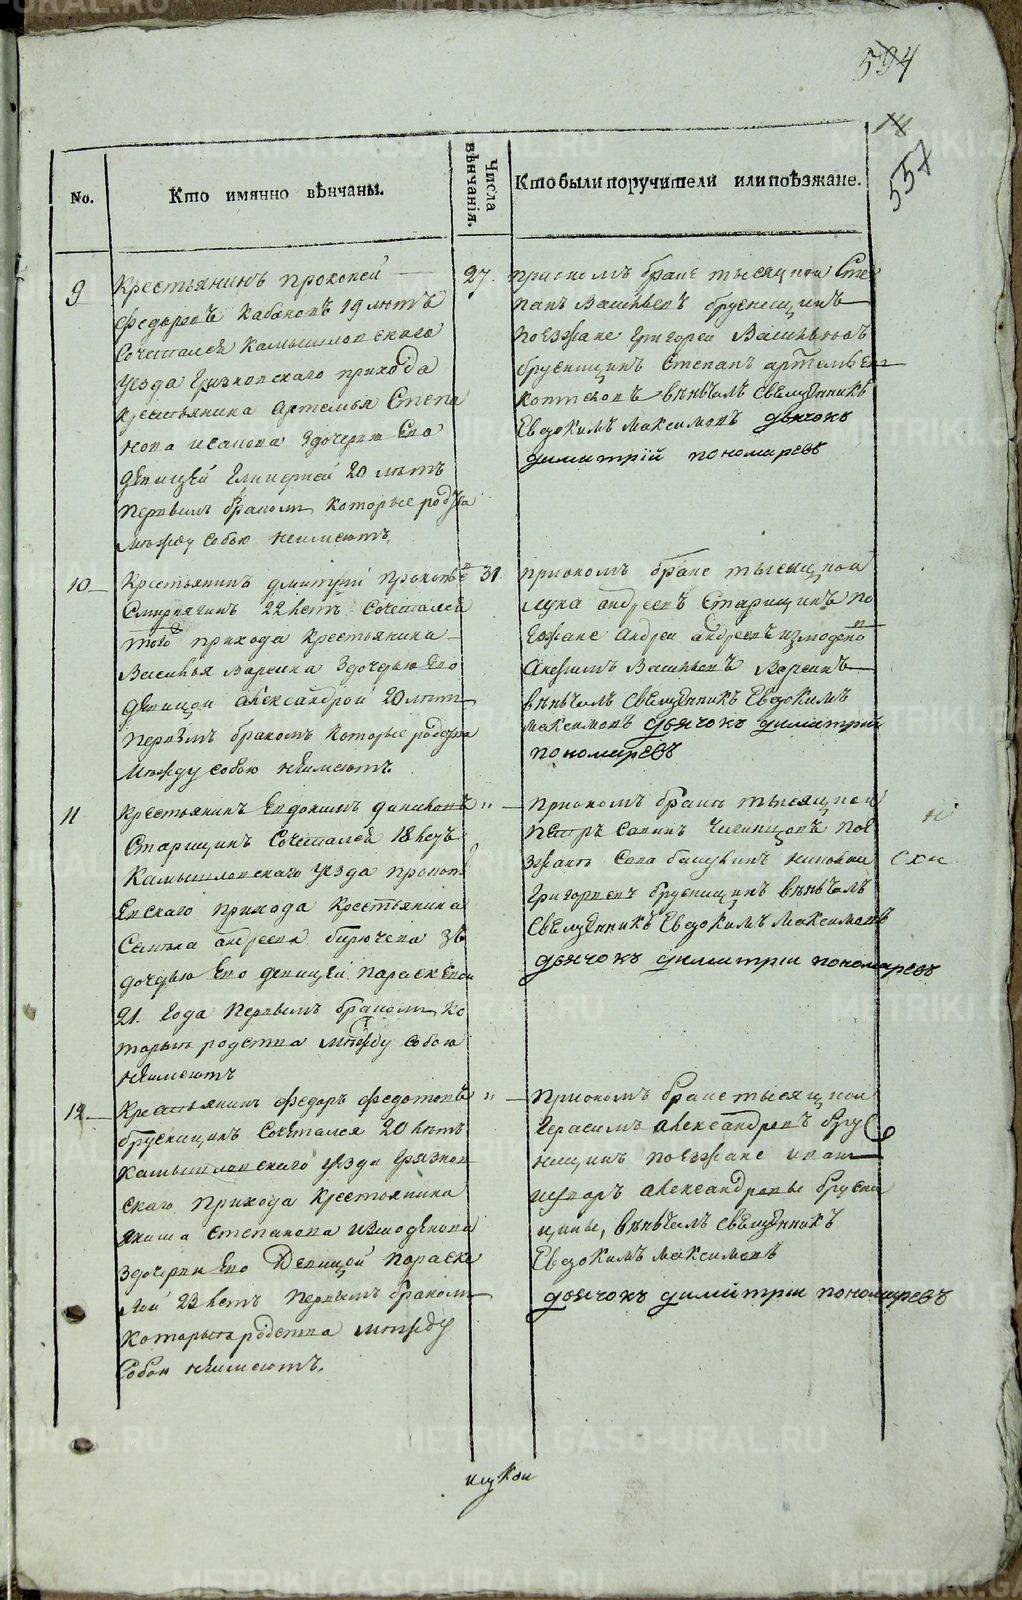 594
14
557
No.
Кто имянно вѣнчаны.
Числа вѣнчанія.
Кто были поручители или поѣзжане.
9
Крестьянинъ прокопей
федоровъ кабаковъ 19 лѣтъ
сочетался камышловскаго
уезда грязновскаго прихода
крестьянина артемья степа
нова исакова здочерью его
девицей гликерией 20 лѣтъ
первымъ бракомъ которые родства
между собою неимеютъ
27.
присемъ браке тысяцкой сте
панъ васильевъ брусницынъ
поезжане григорей васильевъ
брусницынъ степанъ артемьевъ
коптеловъ вѣнчалъ священникъ
Евдокимъ максимовъ дьячокъ
димитрий пономаревъ
10
Крестьянинъ дмитрий прокопьев
Смирнягинъ 22 летъ сочетался
того прихода крестьянина
Василья Варсина здочерью его
девицой александрой 20 лѣтъ
первымъ бракомъ которые родства
между собою неимеютъ
31.
приономъ браке тысяцкой
лука андреевъ старицынъ по
езжане андреи андреевъ измоденов
Акимъ васильевъ Варсинъ
вѣнчалъ священникъ Евдокимъ
максимовъ дьячокъ димитрий
пономаревъ
11
Крестьянинъ Евдокимъ даниловъ
Старицынъ сочетался 18 летъ
Камышловскаго уезда прокопь
евскаго прихода крестьянина
Савы андреева бирючева зъ
дочерью его девицей параскевой
21. года первымъ бракомъ ко
торыя родства между собою
неимеютъ
"
приономъ браке тысяцкой
петръ савинъ чигвинцовъ пое
зжане сава никифоръ
григорьевъ брусницынъ вѣнчалъ
священникъ Евдокимъ Максимовъ
дьячокъ димитрии пономаревъ
12
Крестьянинъ федоръ федотовъ
брусницынъ сочетался 20 летъ
камышловскаго уезда грязнов
скаго прихода крестьянина
якима степанова измоденова
здочерью его Девицой параске
вой 23 летъ первымъ бракомъ
которыя родства между
собой неимеютъ.
"
приономъ браке тысяцкой
герасимъ александровъ брус
ницынъ поезжане иванъ
александровы брусни
цыны, вѣнчалъ священникъ
Евдокимъ максимовъ
дьячокъ димитрии пономаревъ